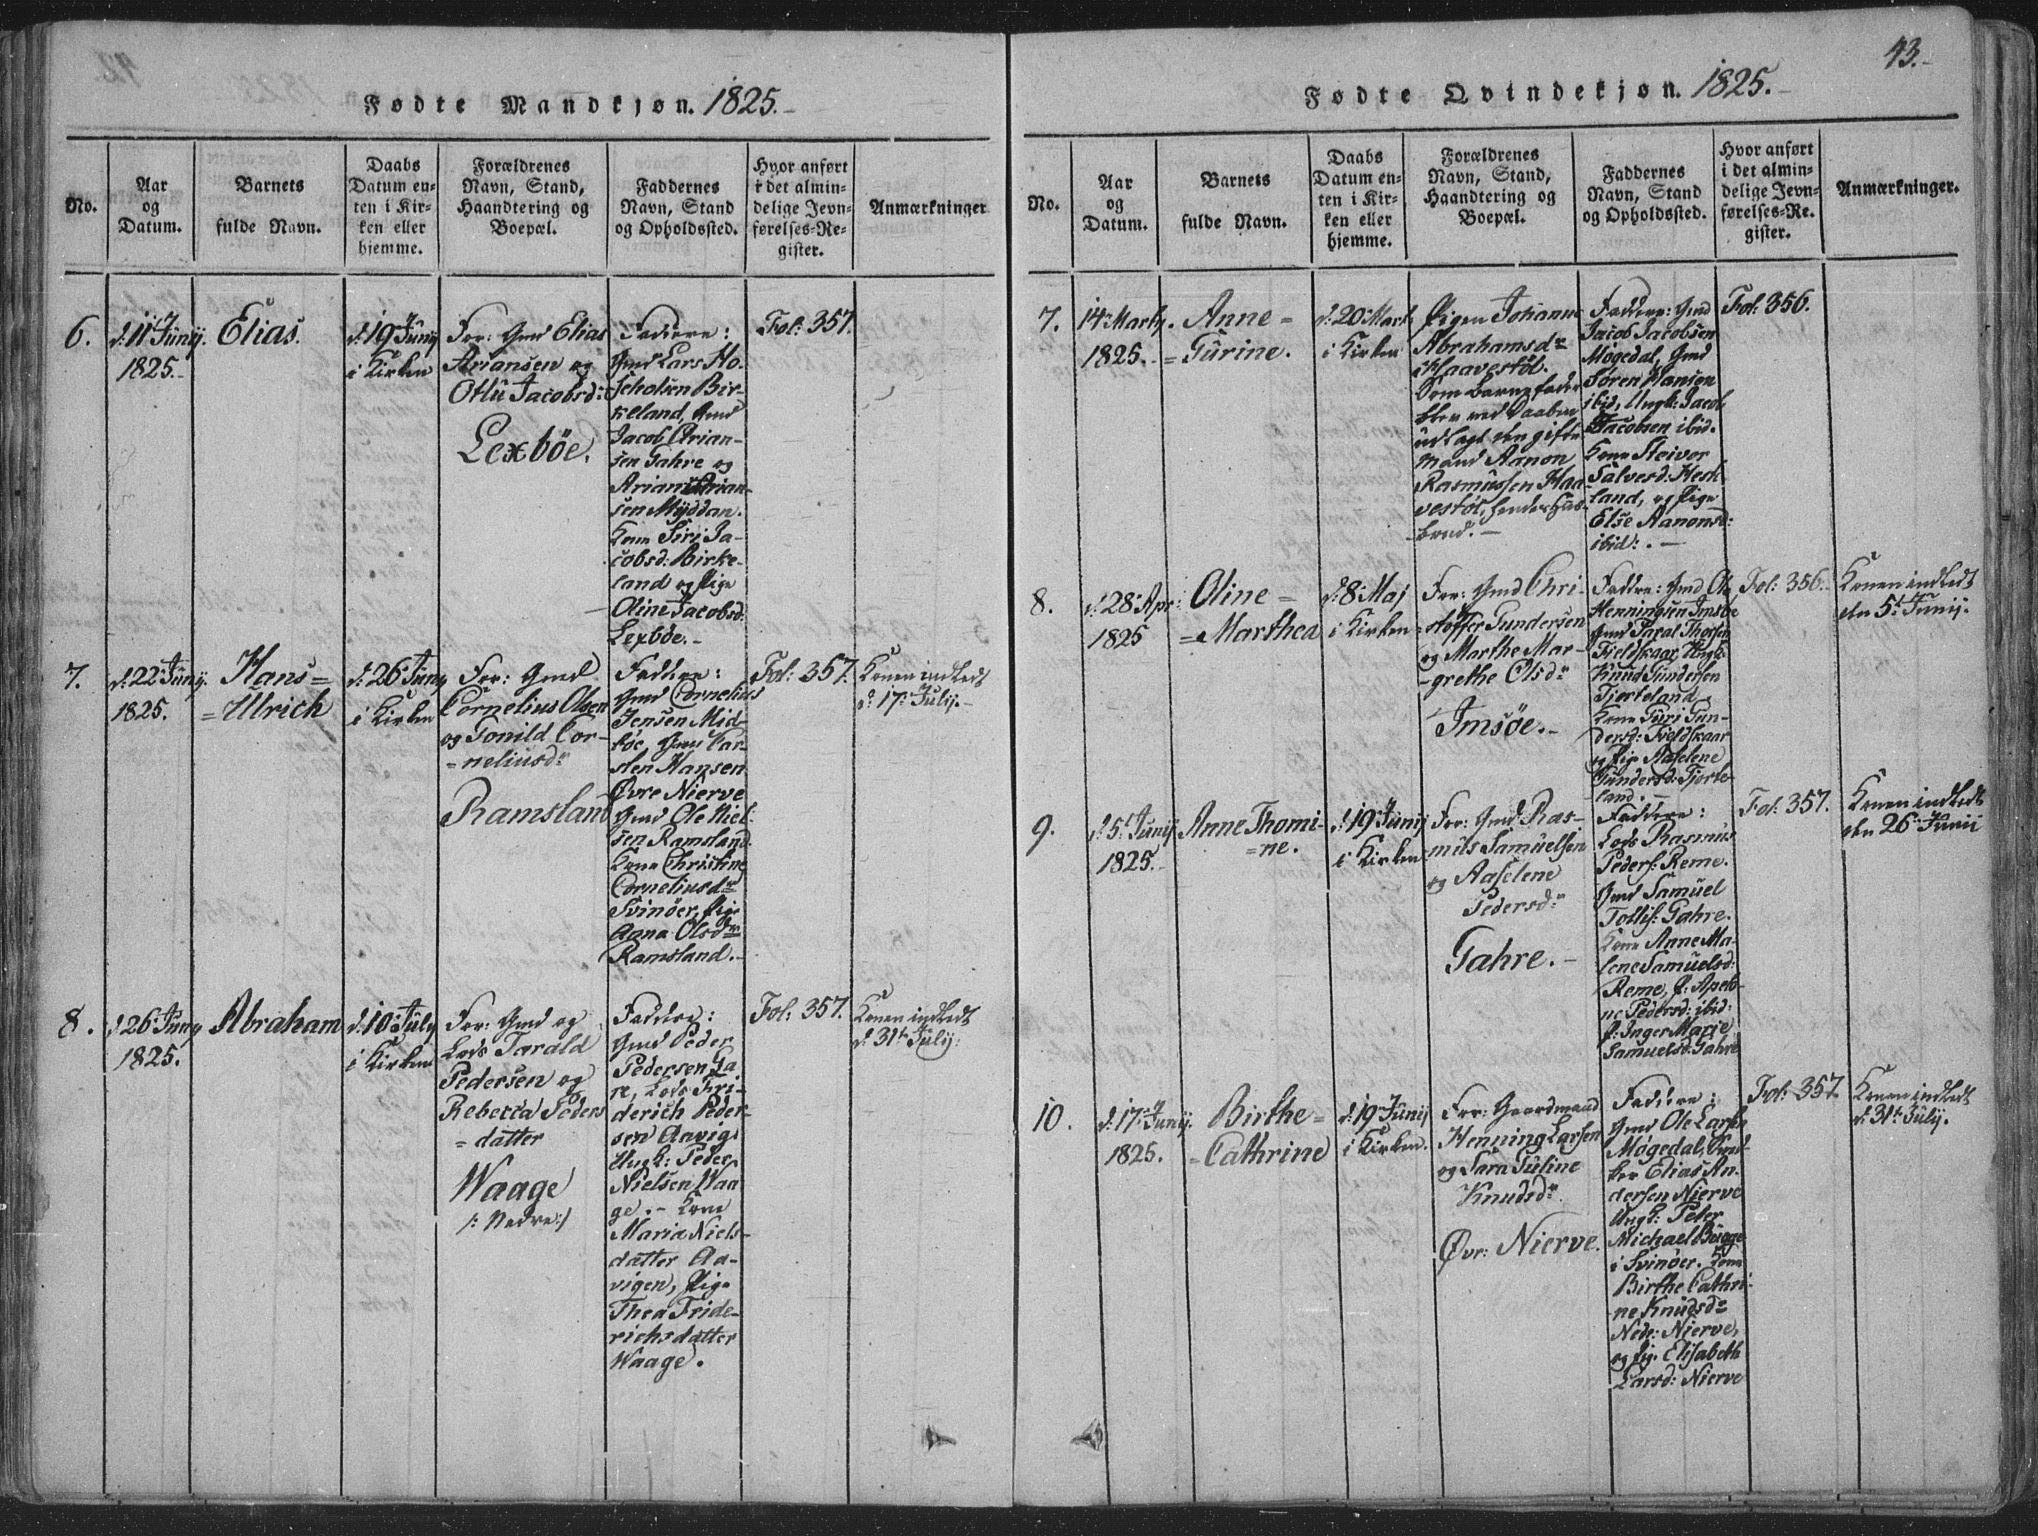 Fødte Mandkjøn. 1825.-
No.
Aar
og
Datum.
Barnets
fulde Navn.
Daabs
Datum en-
ten i Kir-
ken eller
hjemme.
Forældrenes
Navn, Stand,
Haandtering og
Boepæl.
Faddernes
Navn, Stand
og Opholdssted.
Hvor anført
i det almin-
delige Jevn-
førelses-Re-
gister.
Anmærkninger
6.
d: 11t Junij.
1825.-
Elias.
d: 19 Junij
i Kirken
For: Gmd Elias
Ariansen og
Otlu Jacobsd:
Lexbøe.
Faddere:
Gmd Lars To-
Birkeland, Gmd
Jacob Arian-
sen Gahre og
Arian Arian-
sen Myddan.
Kone Siri Ja-
cobsd: Birke-
land og Pige
Oline Jacobsd:
Lexbøe.-
Fol: 357.
7.
d: 22 Junij.
1825.
Hans=
=Ulrich
d: 26 Junij
i Kirken
For: Gmd
Cornelius Olsen
og Tonild Cor-
=neliusdr
Ramsland
Faddere:
Gmd Cornelius
Jensen Mid-
bøe, Gmd Car-
sten Hansen
Øvre Nierve
Gmd Ole Niel-
sen Ramsland.
Kone Christine
Corneliusdr
Svinøer, Pige
Anna Olsdr
Ramsland.-
Fol: 357.
Konen indledt
d: 17: Julij.-
8.
d 26 Junij
1825.
Abraham
d: 10 July
i Kirken
For: Gmd og
Lods Tarald
Pedersen og
Rebecca Peders
=datter
Waage
/: Nedre :/
Faddere:
Gmd Peder
Pedersen Ga-
re, Lods Fri-
derich Peder-
sen Aavig
Ungk: Peder
Nielsen Waa
ge.- Kone
Maria Niels-
datter Aa-
vigen, Pige
Thea Fride-
richsdatter
Waage.
Fol: 357.
Konen indledt
d: 31t Julij.
43.-
Fødte Qvindekjøn. 1825.-
No.
Aar
og
Datum.
Barnets
fulde Navn.
Daabs
Datum en-
ten i Kir-
ken eller
hjemme.
Forældrenes
Navn, Stand,
Haandtering og
Boepæl.
Faddernes
Navn, Stand
og Opholdssted.
Hvor anført
i det almin-
delige Jevn-
førelses-Re-
gister.
Anmærkninger.
7.
14 Martz.
1825.-
Anne=
=Turine.
d: 20 Mart.
i Kirken
Pigen Johanne
Abrahamsdr
Haavestøl.
Som Barnefader
blev ved Daaben
udlagt den gifte
Mand Aanon
Rasmussen Haa
vestøl, hendes Huus-
bond.-
Faddere: Gmd
Jacob Jacobsen
Møgedal, Gmd
Søren Hansen
ibid, Ungk: Jacob
Jacobsen ibid.
Kone Steivor
Salvesd: Hesk-
land, og Pige
Else Aanonsd:
ibid:.-
Fol: 356.
8.
d: 28 Apr:
1825
Oline=
=Marthea
d: 8 Maj
i Kirken
For: Gmd Chri-
stoffer Gundersen
og Marthe Mar-
-grethe Olsdr
Imsøe.-
Faddere: Gmd Ole
Henningsen Imsøe
Gmd Taral Thorsen
Fieldskaar, Ungk:
Knud Gundersen
Tjorteland
Kone Guri Gun-
dersd: Fieldskaar
og Pige Aaselene
Gundersd: Tjorte-
land.-
Fol: 356.
Konen indledt
den 5t Junij.
9.
d: 5t Junij
1825.
Anne Thomi-
=ne.
d: 19 Junij
i Kirken
For: Gmd Ras-
mus Samuelsen
og Aaselene
Pedersdr
Gahre.-
Faddere:
Lods Rasmus
Peders: Reme.
Gmd Samuel
Tollis: Gahre.
Kone Anne Ma-
lene Samuelsd:
Reme, P: Apelo-
ne Pedersd: ibid:
P: Inger Marie
Samuelsd: Gahre
Fol: 357.
Konen indledt
den 26 Junii
10.
d: 17: Junij.
1825.
Birthe=
=Cathrine
d: 19 Junij
i Kirken.
For: Gaardmand
Henning Larsen
og Sara Juline
Knudsdr
Øvr: Nierve.
Faddere:
Gmd Ole Larsen
Møgedal, Enk-
ker Elias An-
dersen Nierve
Ungk: Peter
Michael Bugge
i Svinøer. Kone
Birthe Cathri-
ne Knudsdr
Nedr: Nierve,
og Pig. Elisabeth
Larsd: Nierve
Fol: 357.
Konen indledt
d: 31t Julij.